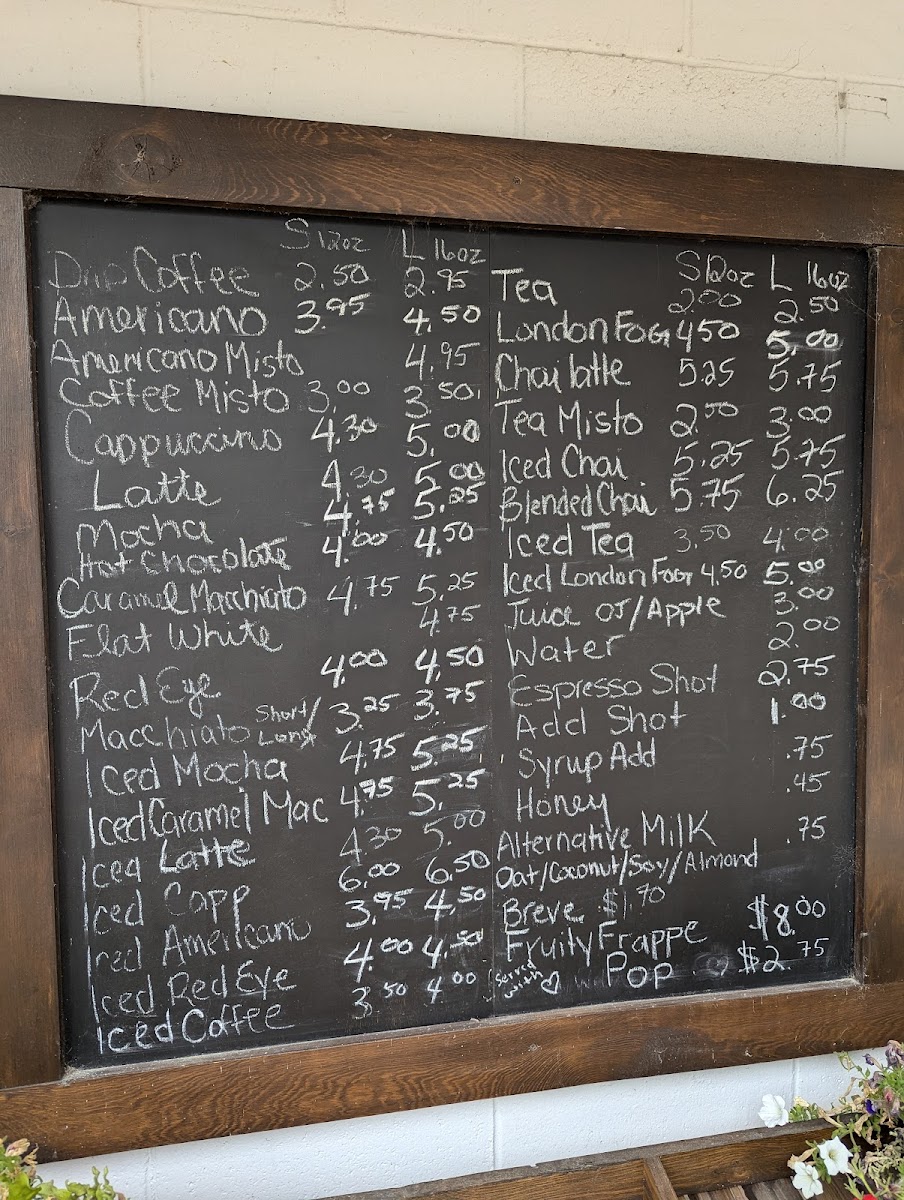 S 12oz L 16oz
Drip Coffee 2.50 2.95
Americano 3.95 4.50
Americano Misto 4.95
Coffee Misto 3.00 3.50
Cappuccino 4.30 5.00
Latte 4.30 5.00
Mocha 4.75 5.25
Hot Chocolate 4.00 4.50
Caramel Macchiato 4.75 5.25
Flat White 4.75
Red Eye 4.00 4.50
Macchiato Short/Long 3.25 3.75
Iced Mocha 4.75 5.25
Iced Caramel Mac 4.75 5.25
Iced Latte 4.30 5.00
Iced Capp 6.00 6.50
Iced Americano 3.95 4.50
Iced Red Eye 4.00 4.50
Iced Coffee 3.50 4.00
S 12oz L 16oz
Tea 2.00 2.50
London Fog 4.50 5.00
Chai latte 5.25 5.75
Tea Misto 2.50 3.00
Iced Chai 5.25 5.75
Blended Chai 5.75 6.25
Iced Tea 3.50 4.00
Iced London Fog 4.50 5.00
Juice OJ/Apple 3.00
Water 2.00
Espresso Shot 2.75
Add Shot 1.00
Syrup Add .75
Honey .45
Alternative Milk .75
Oat/Coconut/Soy/Almond
Breve $1.70
Fruity Frappe $8.00
Served with ♡ Pop $2.75